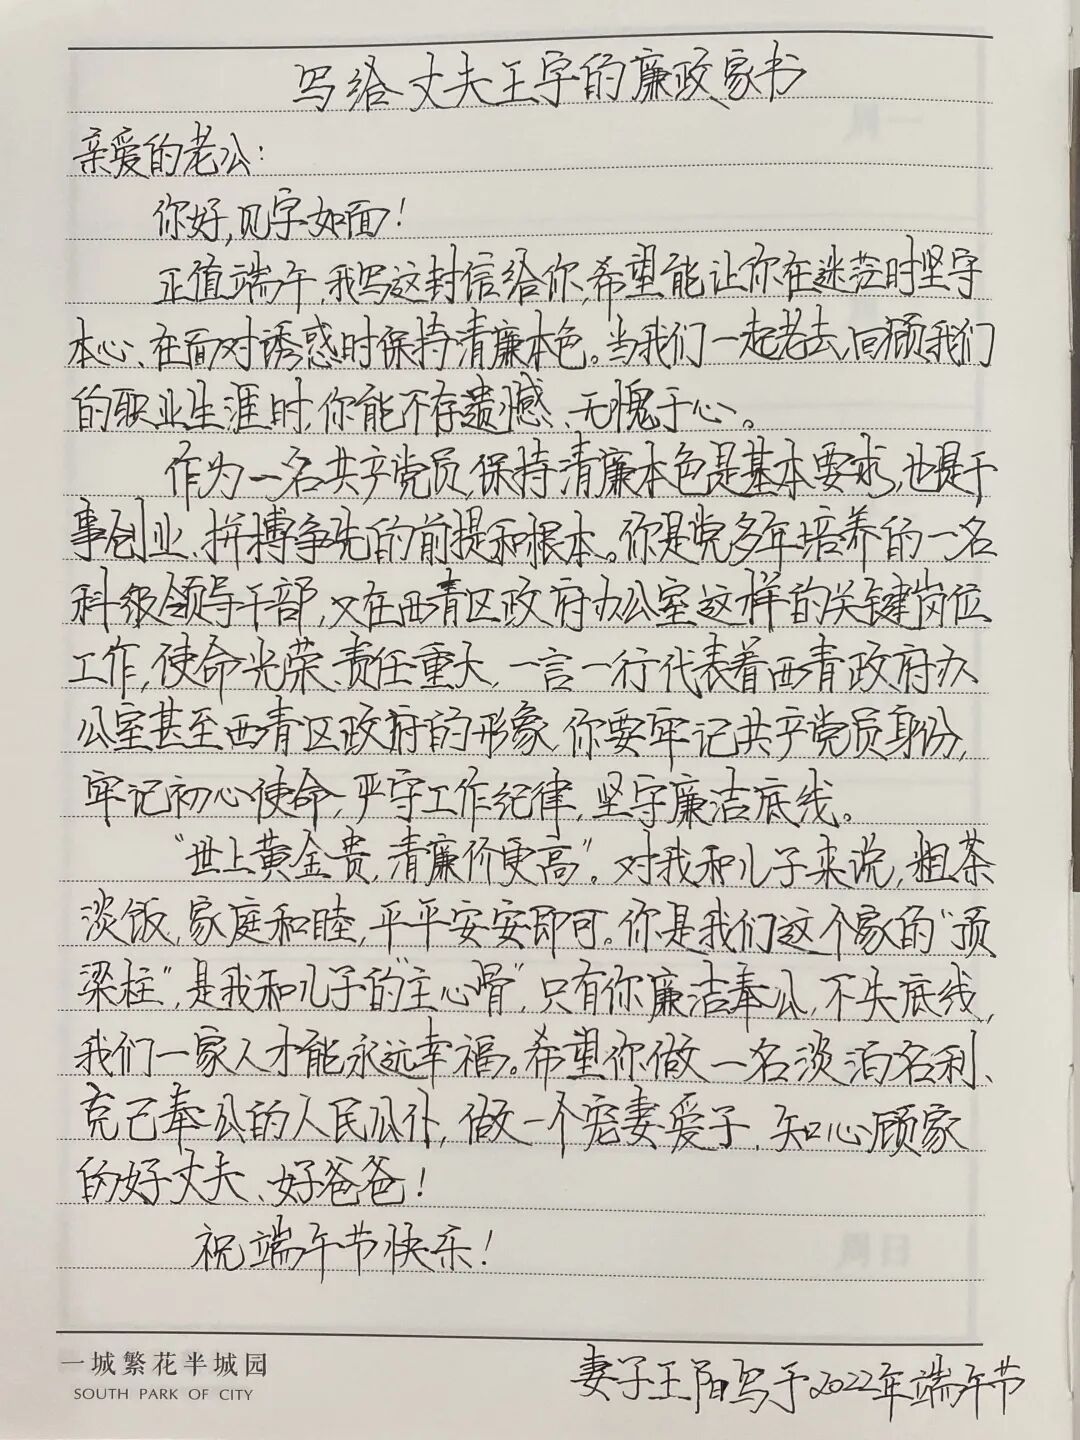 写给丈夫王宇的廉政家书
亲爱的老公:
你好,见字如面!
正值端午,我写这封信给你,希望能让你在迷茫时坚守
本心、在面对诱惑时保持清廉本色。当我们一起老去,回顾我们
的职业生涯时,你能不存遗憾、无愧于心。
作为一名共产党员,保持清廉本色是基本要求,也是干
事创业、拼搏争先的前提和根本。你是党多年培养的一名
科级领导干部,又在西青区政府办公室这样的关键岗位
工作,使命光荣、责任重大,一言一行代表着西青政府办
公室甚至西青区政府的形象,你要牢记共产党员身份,
牢记初心使命,严守工作纪律,坚守廉洁底线。
“世上黄金贵,清廉价更高”。对我和儿子来说,粗茶
淡饭,家庭和睦,平平安安即可。你是我们这个家的“顶
梁柱”,是我和儿子的“主心骨”,只有你廉洁奉公,不失底线,
我们一家人才能永远幸福。希望你做一名淡泊名利、
克己奉公的人民公仆,做一个宠妻爱子、知心顾家
的好丈夫、好爸爸!
祝端午节快乐!
一城繁花半城园
SOUTH PARK OF CITY
妻子王阳写于2022年端午节